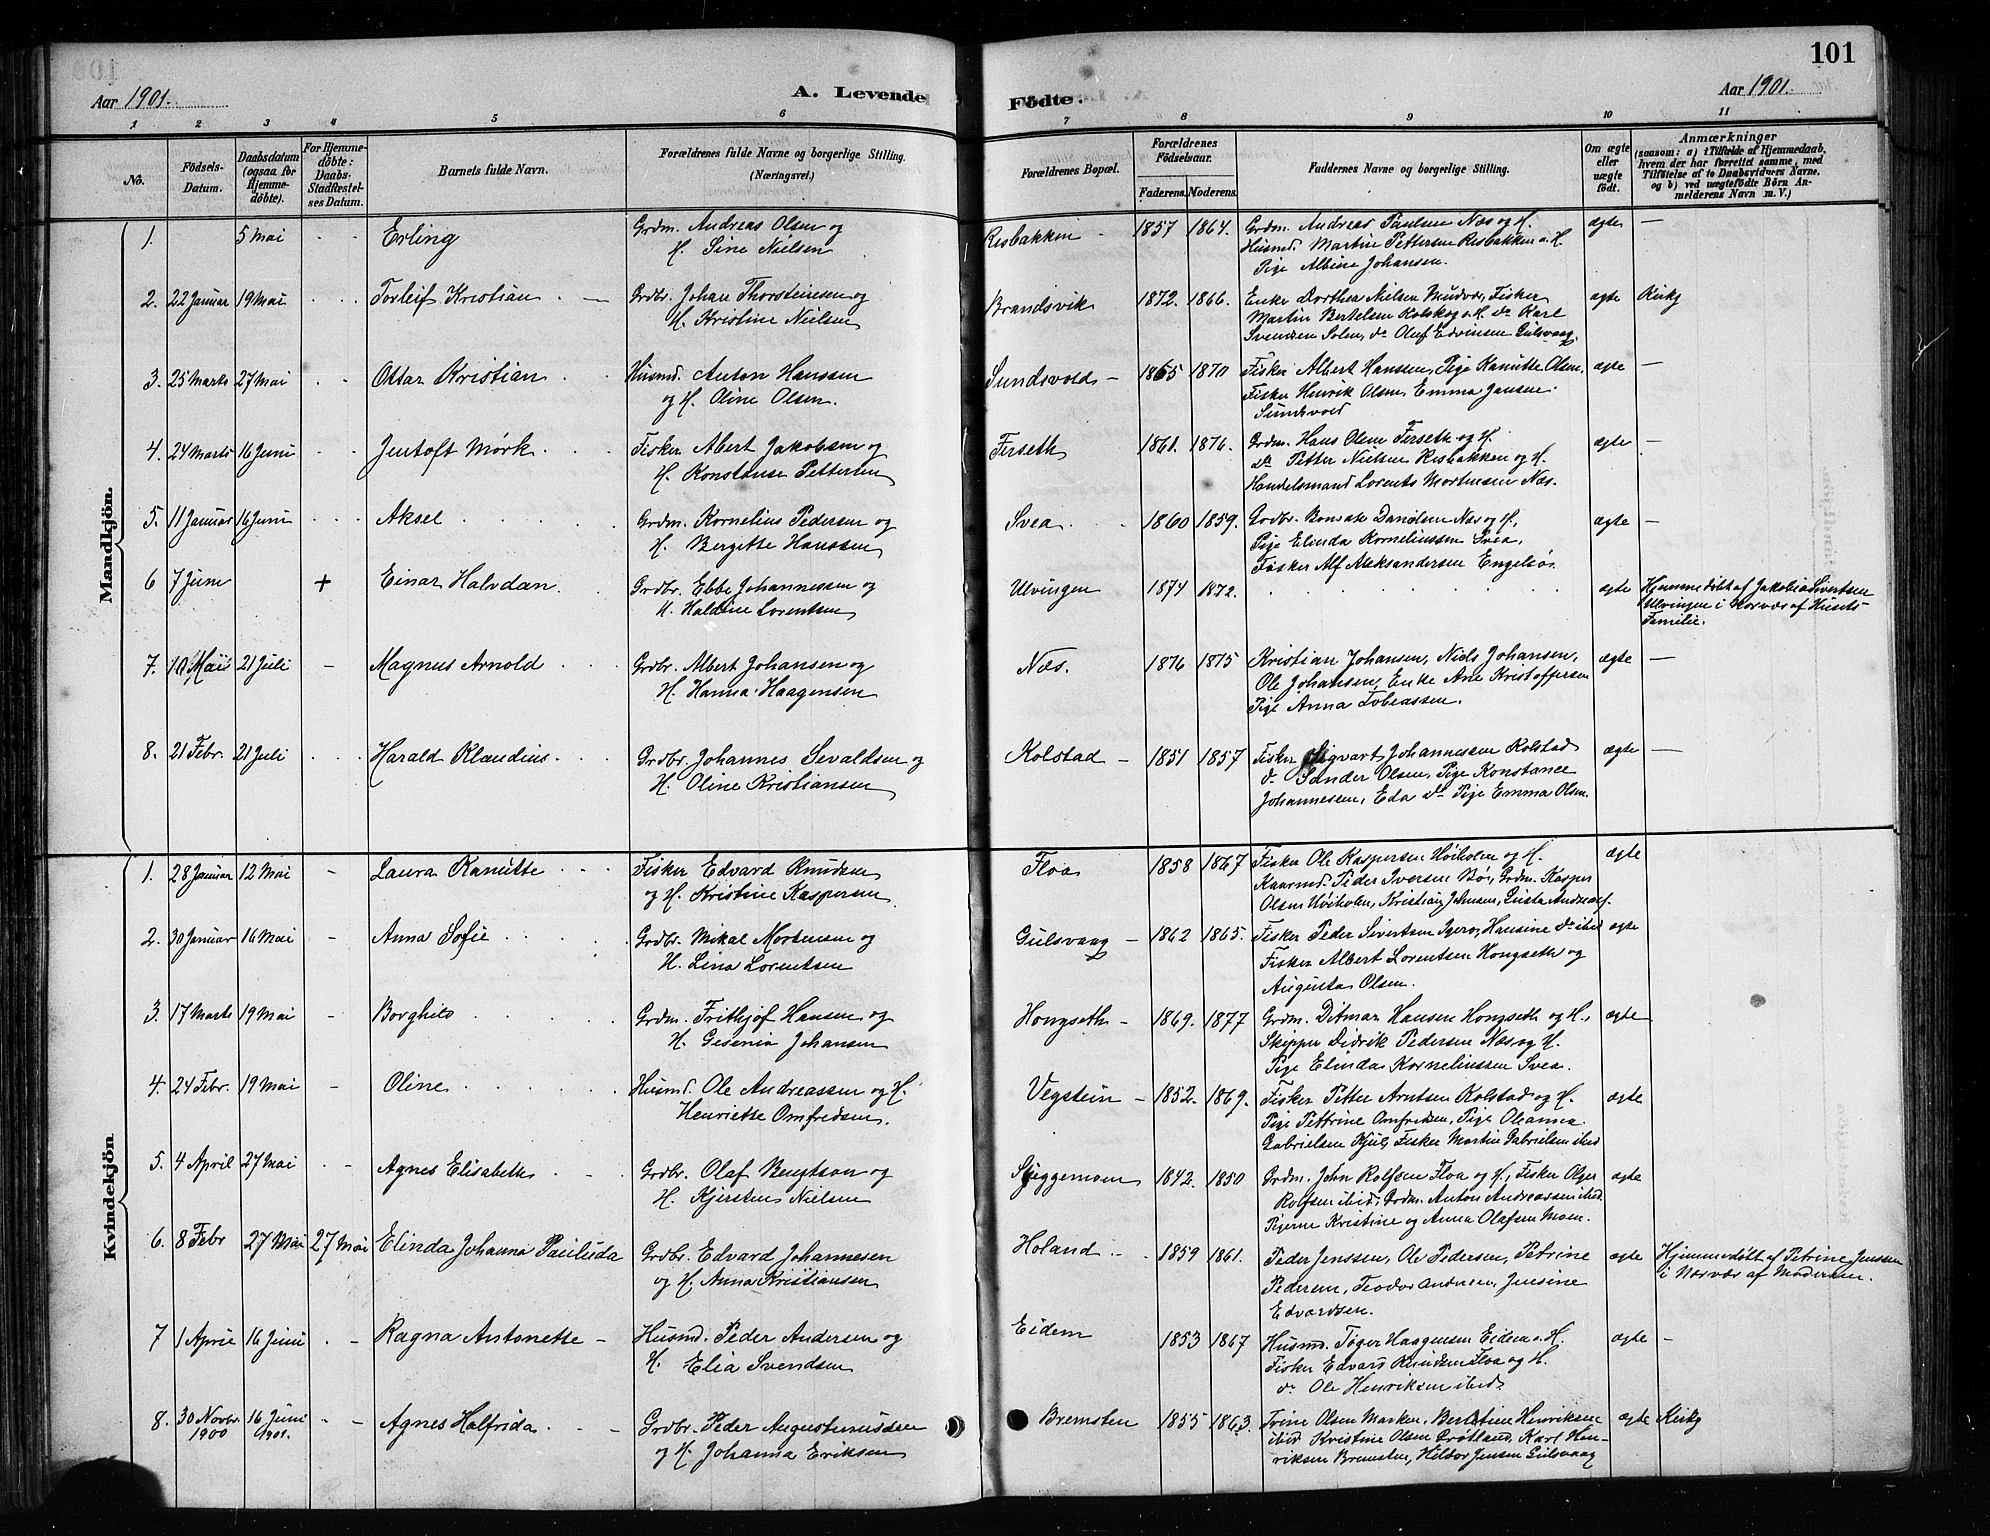 101
Aar 1901.
A. Levende Födte.
Aar 1901.
1 2 3 4 5 6 7 8 9 10 11
No.
Födsels-Datum.
Daabsdatum (ogsaa for Hjemmedöbte).
For Hjemmedöbte: Daabs-Stadfæstelses Datum.
Barnets fulde Navn.
Forældrenes fulde Navne og borgerlige Stilling. (Næringsvei.)
Forældrenes Bopæl.
Forældrenes Födselsaar.
Faderens. Moderens.
Faddernes Navne og borgerlige Stilling.
Om ægte eller uægte födt.
Anmærkninger
(saasom: a) i Tilfælde af Hjemmedaab, hvem der har forrettet samme, med Tilföielse af to Daabsvidners Navne, og b) ved uægtefödte Börn Anmelderens Navn m. V.)
Mandkjön.
1. 5 Mai Erling Grdm. Andreas Olsen og Risbakken 1857 1864. Grdm. Andreas Paulsen Næs og H. ægte —
H. Sine Nielsen Husmd. Martin Pettersen Risbakken o. H.
Pige Albine Johansen.
2. 22 Januar 19 Mai Torleif Kristian Grdbr. Johan Thorsteinsen og Brandsvik 1872. 1866. Enke Dorthea Nielsen Fisker ægte Kirkg
H. Kristine Nielsen Martin Bertelsen Kolskog o. H. do Karl
Svendsen Solem, do Oluf Edvinsen Gulsvaag
3. 25 Marts 27 Mai Ottar Kristian Husmd. Anton Hanssen Sundsvold 1865 1870 Fisker Albert Hanssen, Pige Kanutte Olsen, ægte —
og H. Oline Olsen. Fisker Henrik Olsen, Emma Jensen
Sundsvold
4. 24 Marts 16 Juni Jentoft Mørk Fisker Abert Jakobsen og Ferseth 1861. 1876. Grdm. Hans Olsen Ferseth og H. ægte —
H. Konstanse Pettersen do Petter Nielsen Risbakken og H.
Handelsmand Lorents Mortensen Næs.
5. 11 Januar 16 Juni Aksel Grdm. Kornelius Pedersen og Svea 1860 1859. Grdbr. Bonsak Danilsen Næs og H, ægte —
H. Bergitte Hanssen Pige Elinda Korneliussen Svea,
Fisker Alf Aleksandersen Engelsø
6 7 Juni + Einar Halvdan Grdbr. Ebbe Johannessen og Ulvingen 1874 1872. ægte Hjemmedöbt af Jakobia Sivertsen
H. Haldine Lorentsen Ulvingen i Nærvær af Husets
Familie.
7. 10 Mai 21 Juli — Magnus Arnold Grdbr. Albert Johansen og Næs. 1876 1875 Kristian Johansen, Niels Johansen, ægte —
H. Hanna Haagensen Ole Johansen, Enke Ane Kristoffersen
Pige Anna Tobiassen.
8. 21 Febr. 21 Juli Harald Klaudius Grdbr. Johannes Sevaldsen og Kolstad 1851 1857 Fisker Sigvart Johannessen Kolstad ægte —
H. Oline Kristiansen do Sander Olsen, Pige Konstance
Johannessen, Eda do Pige Emma Olsen.
Kvindekjön.
1. 28 Januar 12 Mai — Laura Kanutte Fisker Edvard Knudsen Floa 1858 1867 Fisker Ole Kaspersen Høiholm og H. ægte
og H. Kristine Kaspersen Kaarmd. Peder Iversen Bø, Grdm. Kasper
Olsen Høiholm, Kristian Johnsen, Gusta Andreas.
2. 30 Januar 16 Mai — Anna Sofie Grdbr. Mikal Mortensen og Gulsvaag 1862 1865. Fisker Peder Sivertsen Igerø, Hansine do ibid ægte
H. Lina Lorentsen Fisker Albert Lorentsen Hongseth og
Augusta Olsen.
3. 17 Marts 19 Mai — Borghild Grdm. Frithjof Hansen og Hongseth 1869. 1877 Grdm. Ditmar Hansen Hongseth og H., ægte
H. Gisenia Johansen Skipper Didrik Pedersen Næs og H.
Pige Elinda Korneliussen Svea.
4. 24 Febr. 19 Mai — Oline Husmd. Ole Andreassen og H. Vegstein 1852. 1869. Fisker Petter Arntsen Kolstad og H. ægte
Henriette Omfredsen. Pige Pettrine Omfredsen, Pige Oleanna
Gabrielsen Kjul, Fisker Martin Gabrielsen ibid
5. 4 April 27 Mai Agnes Elisabeth Grdbr. Olaf Bengtson og Skjeggemoen 1842. 1850 Grdm. John Rolfsen Floa og H, Fisker Olger ægte
H. Kjersten Nielsen Rolfsen ibid, Grdm. Anton Andreassen ibid
Pigerne Kristine og Anna Olafsen Moen.
6. 8 Febr 27 Mai 27 Mai Elinda Johanna Paulida Grdbr. Edvard Johannesen Holand 1859 1861. Peder Jenssen, Ole Pedersen, Petrine ægte Hjemmedöbt af Petrine Jenssen
og H. Anna Kristiansen Pedersen, Teodor Andersen, Jensine i Nærvær af Moderen.
Edvardsen.
7 1 April 16 Juni Ragna Antonette Husmd. Peder Andersen og Eidem 1853 1867 Husmd. Toger Haagensen Eidem o. H. ægte —
H. Elia Svendsen Fisker Edvard Knudsen Floa og H.
do Ole Henriksen ibid
8. 30 Novbr. 1900 16 Juni 1901. Agnes Halfrida Grdbr. Peder Augustinussen Bremsten 1855 1863. Trine Olsen Marken, Berntine Henriksen ægte Kirkg
og H. Johanna Eriksen ibid Kristine Olsen Grøtland, Karl Hen-
riksen Bremsten, Hildor Jensen Gulsvaag